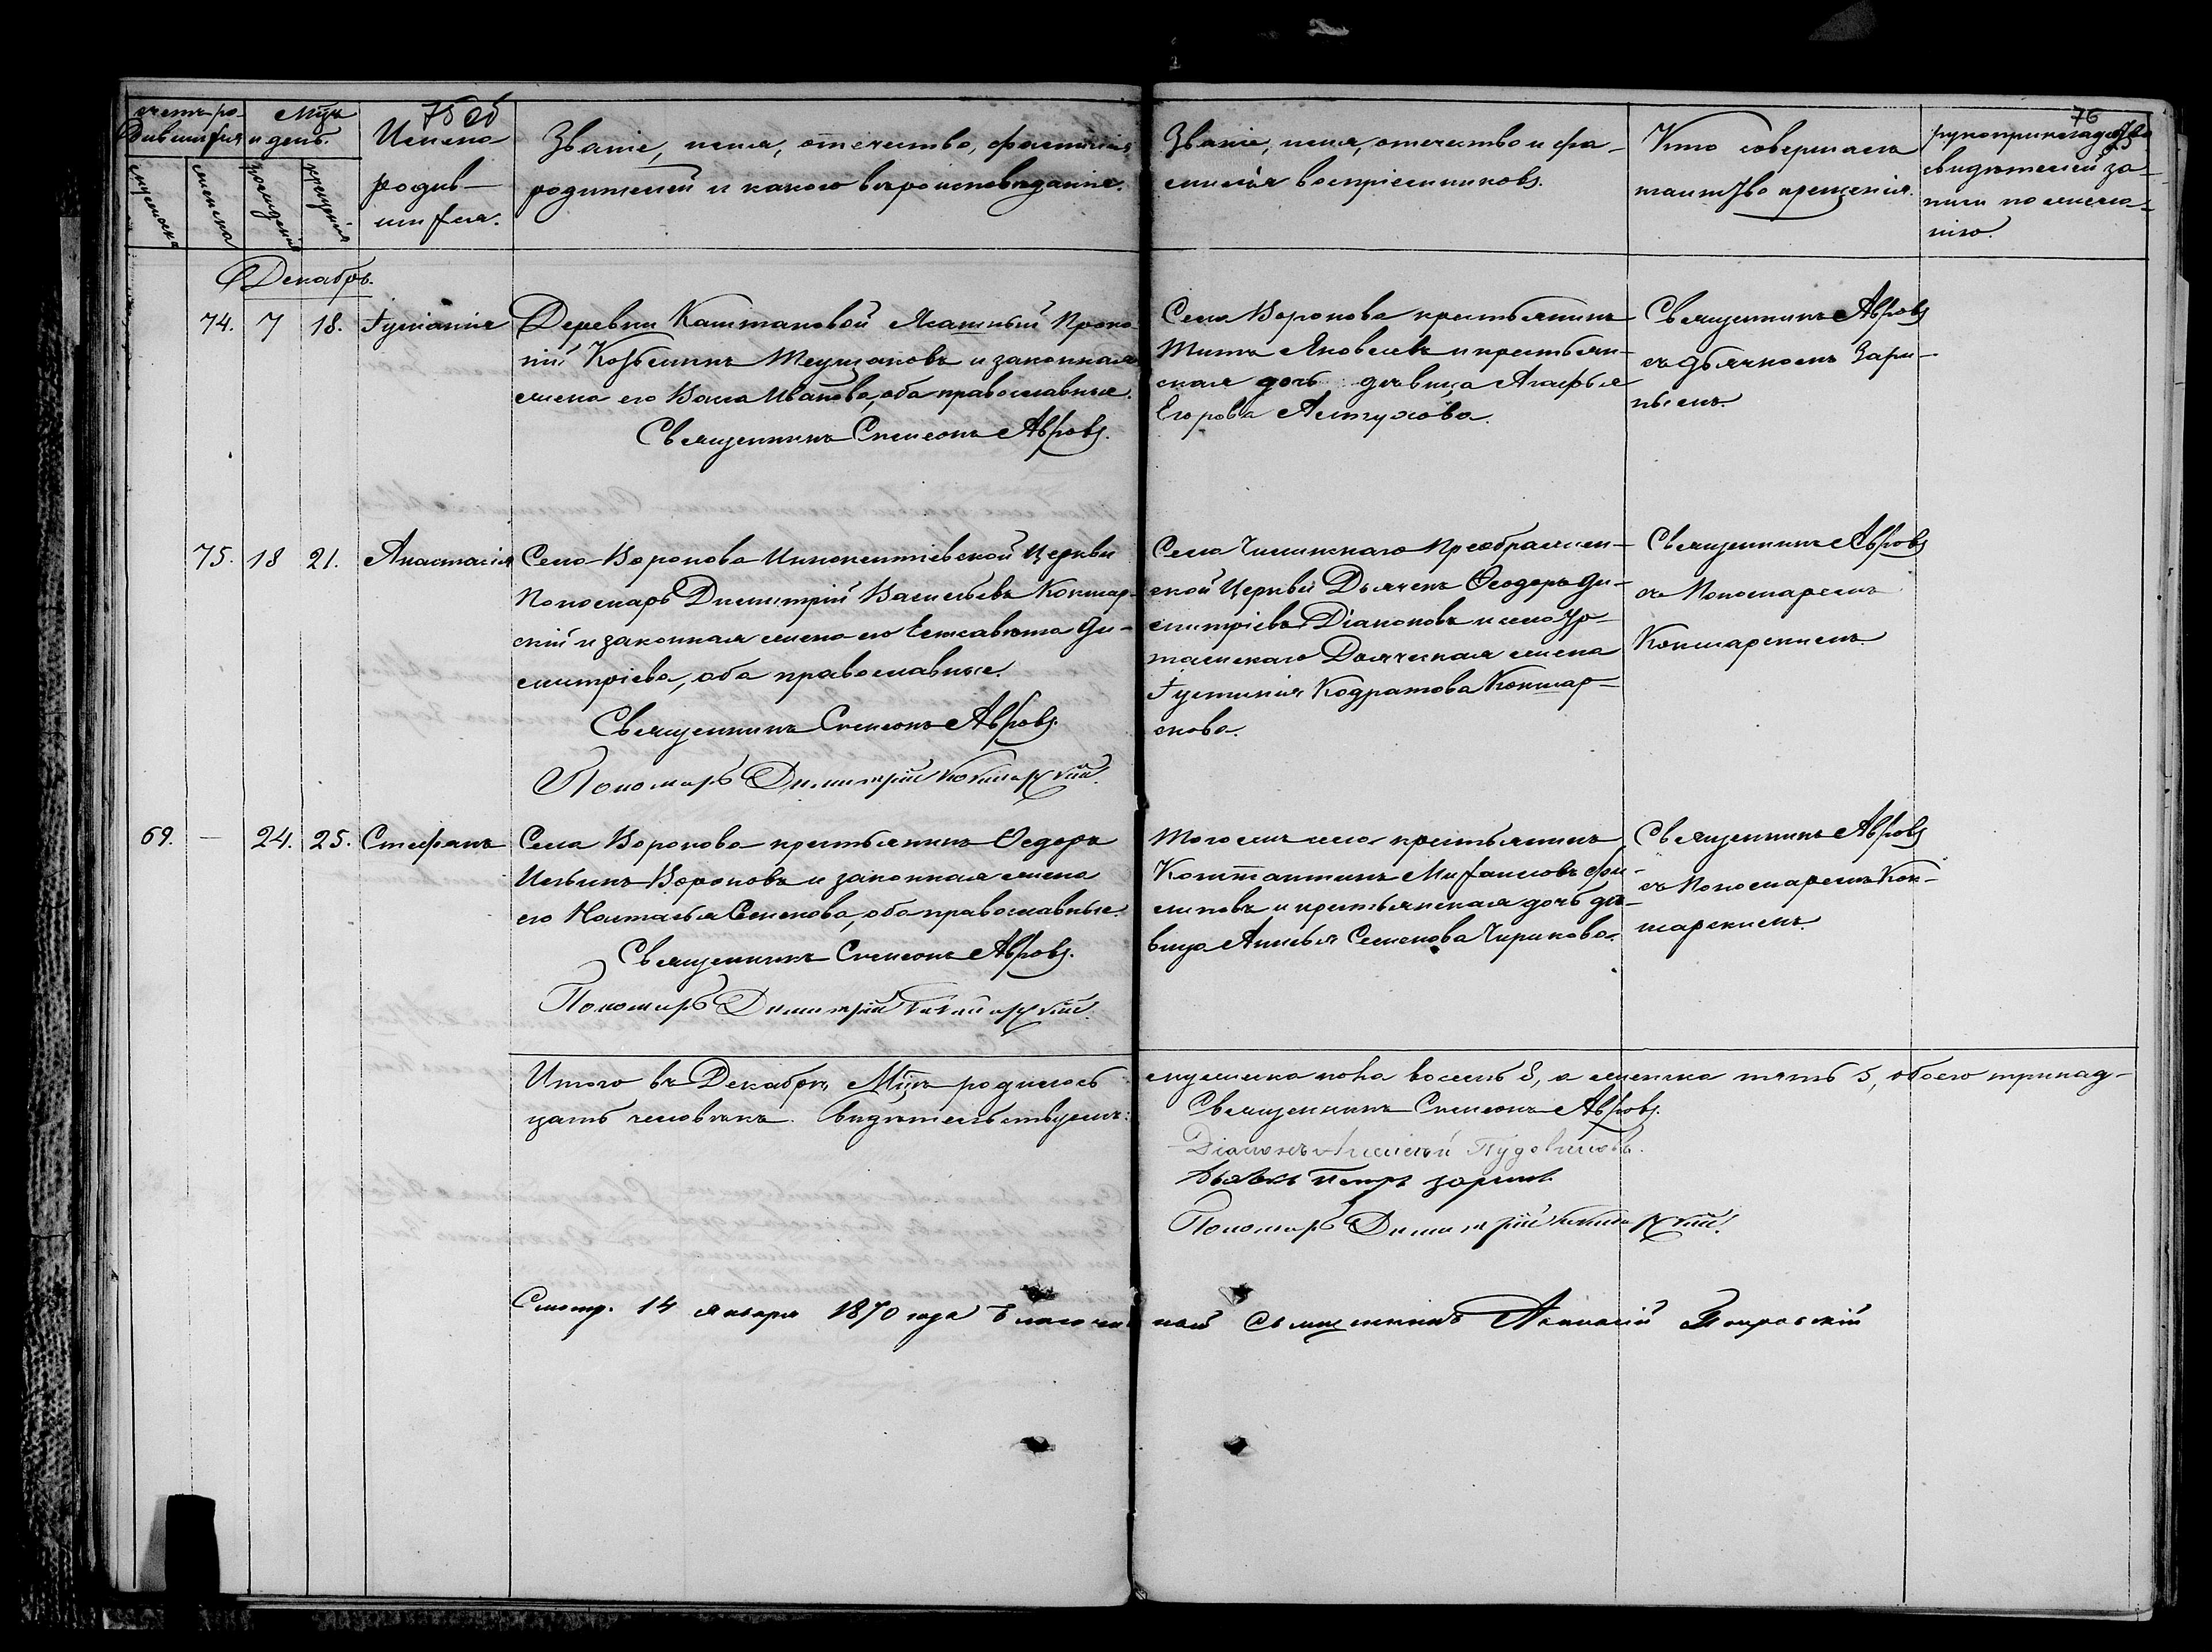 75 об
76
Счетъ ро-
дившихся
Мцъ
и день.
мужеска
женска
рожденія
крещенія
Имена
родив-
шихся.
Званіе, имя, отечество, фамилія
родителей и какого вѣроисповѣданія.
Званіе, имя, отечество и фа-
милія воспріемниковъ.
Кто совершалъ
таинство крещенія.
рукоприкладство
свидѣтелей за-
писи по желa-
нію.
Декабрь.
74. 7 18. Іуліанія
Деревни Каштаковой Ясашный Проко-
пій Козьминъ Теущаковъ и законная
жена его Васса Иванова, оба православные.
Священникъ Симеонъ Авровъ.
Села Воронова крестьянинъ
Титъ Яковлевъ и крестьян-
ская дочь дѣвица Агафья
Егорова Астухова.
Священникъ Авровъ
съ дьячкомъ Зари-
нымъ.
75. 18 21. Анастасія
Села Воронова Иннокентіевской Церкви
Пономарь Димитрій Васильевъ Кокшар-
скій и законная жена его Елисавета Ди-
митріева, оба православные.
Священникъ Симеонъ Авровъ.
Пономарь Димитрій Кокшарскій.
Села Чилинскаго Преображен-
ской Церкви Дьячекъ Ѳеодоръ Ди-
митріевъ Діаконовъ и села Ур-
тамскаго Дьяческая жена
Іустинія Кодратова Кокшар-
скова.
Священникъ Авровъ
съ Пономаремъ
Кокшарскимъ.
69. — 24. 25. Стефанъ
Села Воронова крестьянинъ Ѳедоръ
Ильинъ Вороновъ и законная жена
его Настасья Семенова, оба православные.
Священникъ Симеонъ Авровъ.
Пономарь Димитрій Кокшарскій.
Того жъ села крестьянинъ
Константинъ Михаиловъ Фи-
липовъ и крестьянская дочь дѣ-
вица Анисья Семенова Чирикова.
Священникъ Авровъ
съ Пономаремъ Кок-
шарскимъ.
Итого въ Декабрѣ Мцѣ родилось мужеска пола восемь 8, а женска пять 5, обоего тринад-
цать человѣкъ. Свидѣтельствуемъ:
Священникъ Симеонъ Авровъ.
Діаконъ Алексѣй Пудовиковъ.
Дьячекъ Петръ Заринъ.
Пономарь Димитрій Кокшарскій.
Смотр. 14 января 1870 года Благочинной Священникъ Покровскій